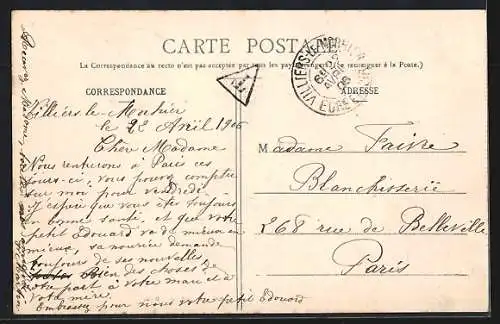 CARTE POSTALE
La Correspondance au recto n'est pas acceptée par tous les pays étrangers (se renseigner à la Poste.)
CORRESPONDANCE
ADRESSE
Villiers le Morhier
le 22 Avril 1906
Chère Madame
Nous rentrerons à Paris ces
jours-ci, vous pouvez compter
sur moi pour vendredi.
J'espère que vous êtes toujours
en bonne santé, et que votre
petit Edouard va de mieux en
mieux, sa nourrice demande
toujours de ses nouvelles,
Bien des choses de
notre part à votre mari et à
votre mère.
Embrassez pour nous votre petit Edouard
Madame Faivre
Blanchisserie
268 rue de Belleville
Paris
VILLIERS-LE-MORHIER